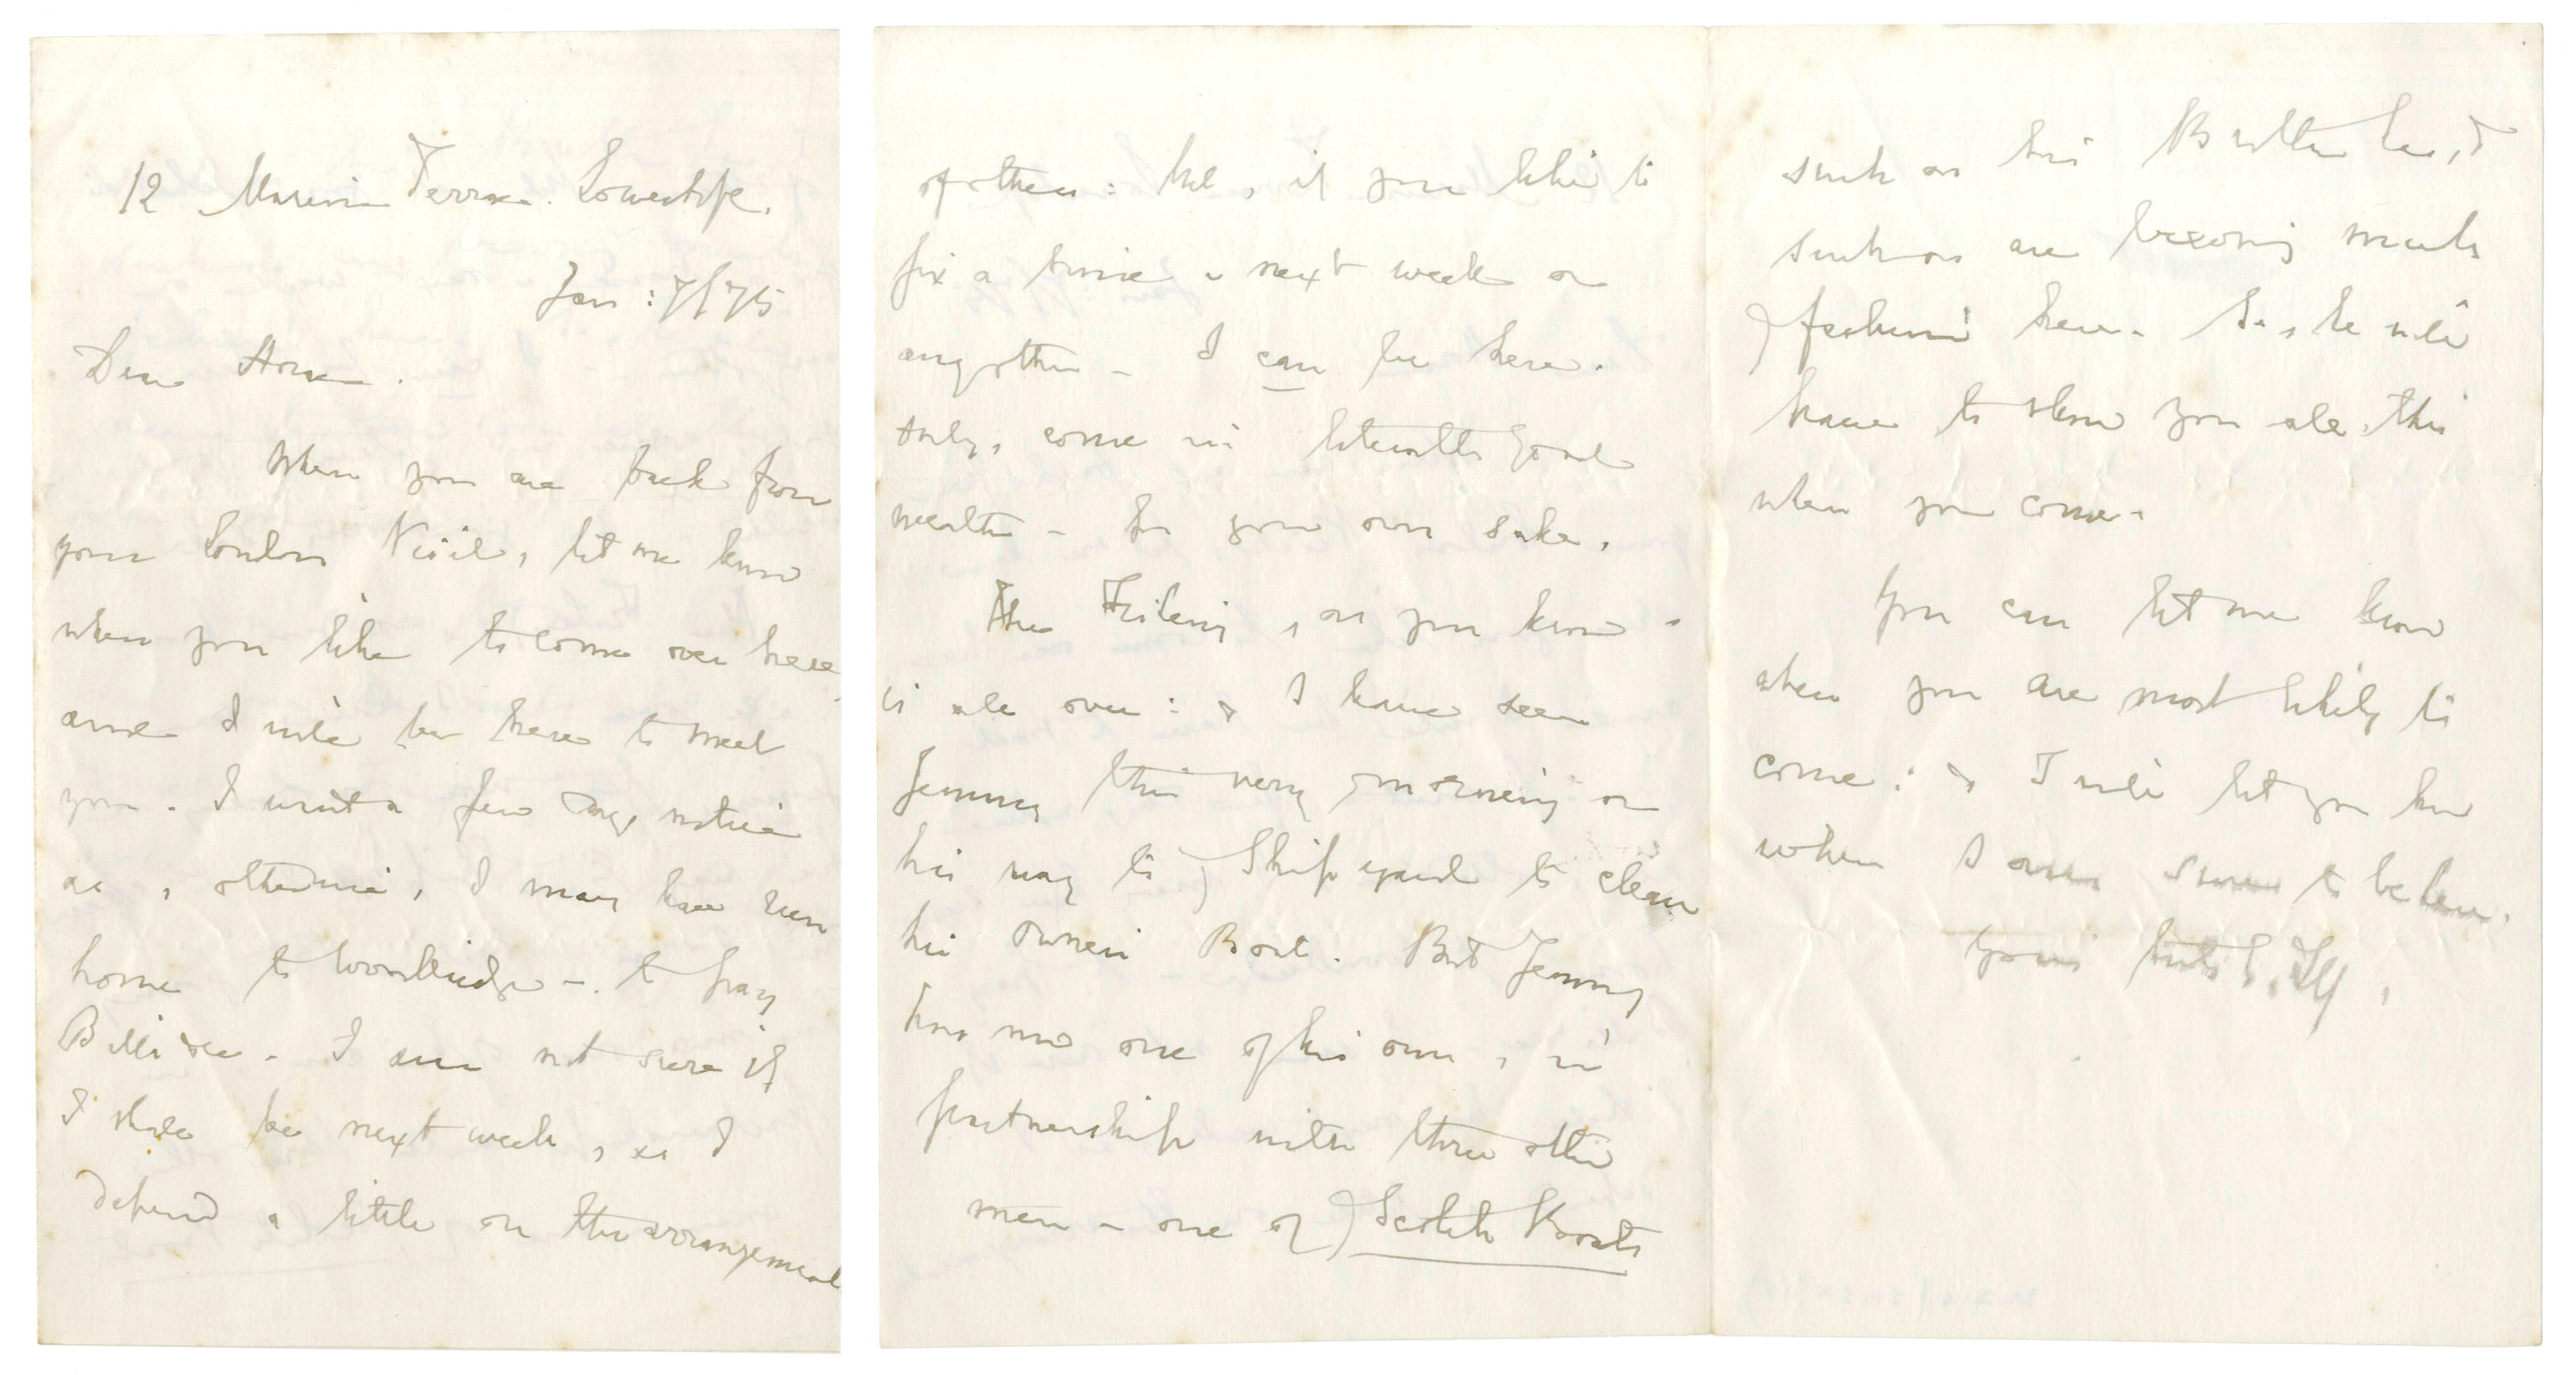 12 Marine Terrace. Lowestoft.
Jan: 7/75
Dear
When you are back from
your London Visit, let me know
when you like to come over here,
and I will be here to meet
you. I want a few days notice
as, otherwise, I may have run
home to Woodbridge - to pay
Bills &c. I am not sure if
I shall be next week, as I
depend a little on the arrangement
of others: but, if you like to
fix a time - next week or
any other - I can be here.
Only, come in tolerable good
weather - for your own sake.
The Fishing, as you know -
is all over: & I have seen
Jemmy this very morning on
his way to Ship yard to clean
his owner's Boat. But Jemmy
has now one of his own, in
partnership with three other
men - one of Scotch Boats
such as his Brother had, &
such as are becoming much
fashion here. So, he will
have to show you all this
when you come.
You can let me know
when you are most likely to
come: & I will let you know
when I am sure to be here.
Yours